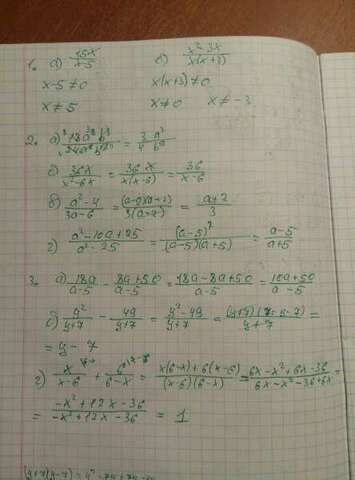 1. а) 15x/x-5 б) x²-3x/x(x+3)
x-5≠0 x(x+3)≠0
x≠5 x≠0 x≠-3
2. а) = 3/4
б) 36x/x²-6x = 36x/x(x-6) = 36/x-6
в) a²-4/3a-6 = = a+2/3
г) a²-10a+25/a²-25 = (a-5)²/(a-5)(a+5) = a-5/a+5
3. а) 18a/a-5 - 8a+50/a-5 = 18a-8a+50/a-5 = 10a+50/a-5
б) y²/y+7 - 49/y+7 = y²-49/y+7 = =
= y-7
г) x/x-6 + 6/6-x = x(6-x)+6(x-6)/(x-6)(6-x) = 6x-x²+6x-36/6x-x²-36+6x =
= -x²+12x-36/-x²+12x-36 = 1